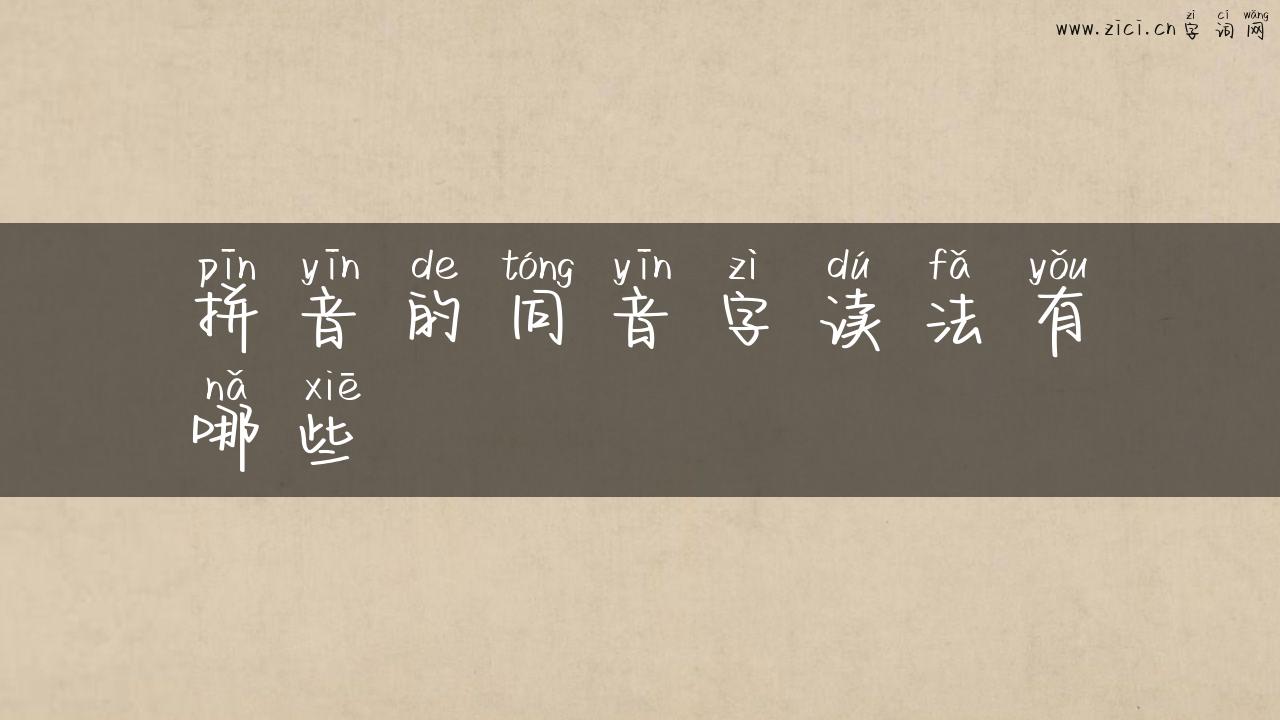 zì cí wǎng
www.zici.cn 字词网
pīn yīn de tóng yīn zì dú fǎ yǒu
拼音的同音字读法有
nǎ xiē
哪些